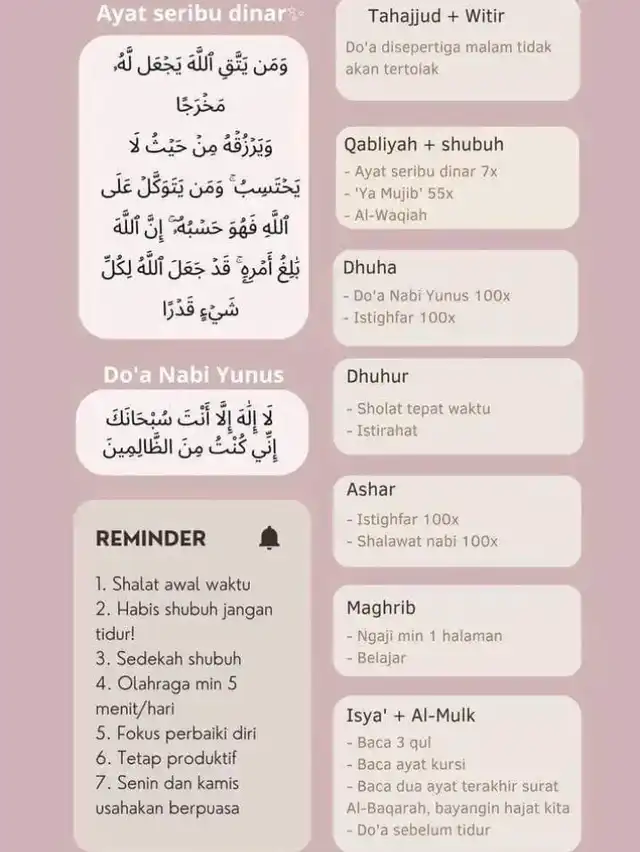 Ayat seribu dinar✨
وَمَن يَتَّقِ ٱللَّهَ يَجْعَل لَّهُۥ
مَخْرَجًا
وَيَرْزُقْهُ مِنْ حَيْثُ لَا
يَحْتَسِبُ ۚ وَمَن يَتَوَكَّلْ عَلَى
ٱللَّهِ فَهُوَ حَسْبُهُۥٓ ۚ إِنَّ ٱللَّهَ
بَٰلِغُ أَمْرِهِۦ ۚ قَدْ جَعَلَ ٱللَّهُ لِكُلِّ
شَىْءٍ قَدْرًا
Do'a Nabi Yunus
لَا إِلَٰهَ إِلَّا أَنْتَ سُبْحَانَكَ
إِنِّي كُنْتُ مِنَ الظَّالِمِينَ
REMINDER
1. Shalat awal waktu
2. Habis shubuh jangan
tidur!
3. Sedekah shubuh
4. Olahraga min 5
menit/hari
5. Fokus perbaiki diri
6. Tetap produktif
7. Senin dan kamis
usahakan berpuasa
Tahajjud + Witir
Do'a disepertiga malam tidak
akan tertolak
Qabliyah + shubuh
- Ayat seribu dinar 7x
- 'Ya Mujib' 55x
- Al-Waqiah
Dhuha
- Do'a Nabi Yunus 100x
- Istighfar 100x
Dhuhur
- Sholat tepat waktu
- Istirahat
Ashar
- Istighfar 100x
- Shalawat nabi 100x
Maghrib
- Ngaji min 1 halaman
- Belajar
Isya' + Al-Mulk
- Baca 3 qul
- Baca ayat kursi
- Baca dua ayat terakhir surat
Al-Baqarah, bayangin hajat kita
- Do'a sebelum tidur